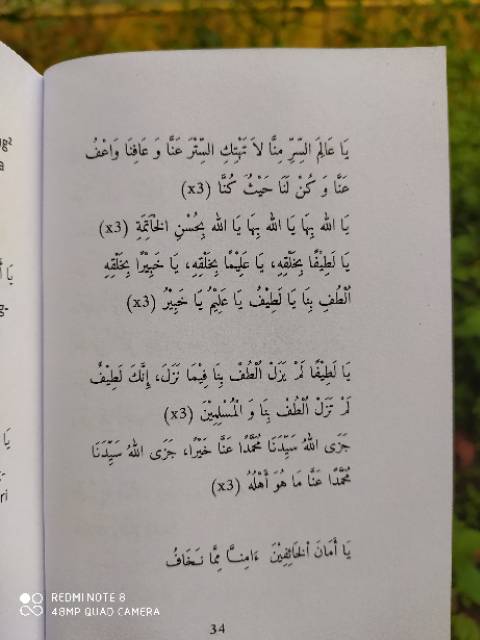 يَا عَالِمَ السِّرِّ مِنَّا لاَ تَهْتِكِ السِّتْرَ عَنَّا وَ عَافِنَا وَاعْفُ
عَنَّا وَ كُنْ لَنَا حَيْثُ كُنَّا (x3)
يَا الله بِهَا يَا الله بِهَا يَا الله بِحُسْنِ الْخَاتِمَةِ (x3)
يَا لَطِيْفًا بِخَلْقِهِ، يَا عَلِيْمًا بِخَلْقِهِ، يَا خَبِيْرًا بِخَلْقِهِ
اُلْطُفِ بِنَا يَا لَطِيْفُ يَا عَلِيْمُ يَا خَبِيْرُ (x3)
يَا لَطِيْفًا لَمْ يَزَلْ اُلْطُفْ بِنَا فِيْمَا نَزَلَ، إِنَّكَ لَطِيْفٌ
لَمْ تَزَلْ اُلْطُفْ بِنَا وَ الْمُسْلِمِيْنَ (x3)
جَزَى اللهُ سَيِّدَنَا مُحَمَّدًا عَنَّا خَيْرًا، جَزَى اللهُ سَيِّدَنَا
مُحَمَّدًا عَنَّا مَا هُوَ أَهْلُهُ (x3)
يَا أَمَانَ الْخَائِفِيْنَ ءَامِنَّا مِمَّا نَخَافُ
34
REDMI NOTE 8
48MP QUAD CAMERA